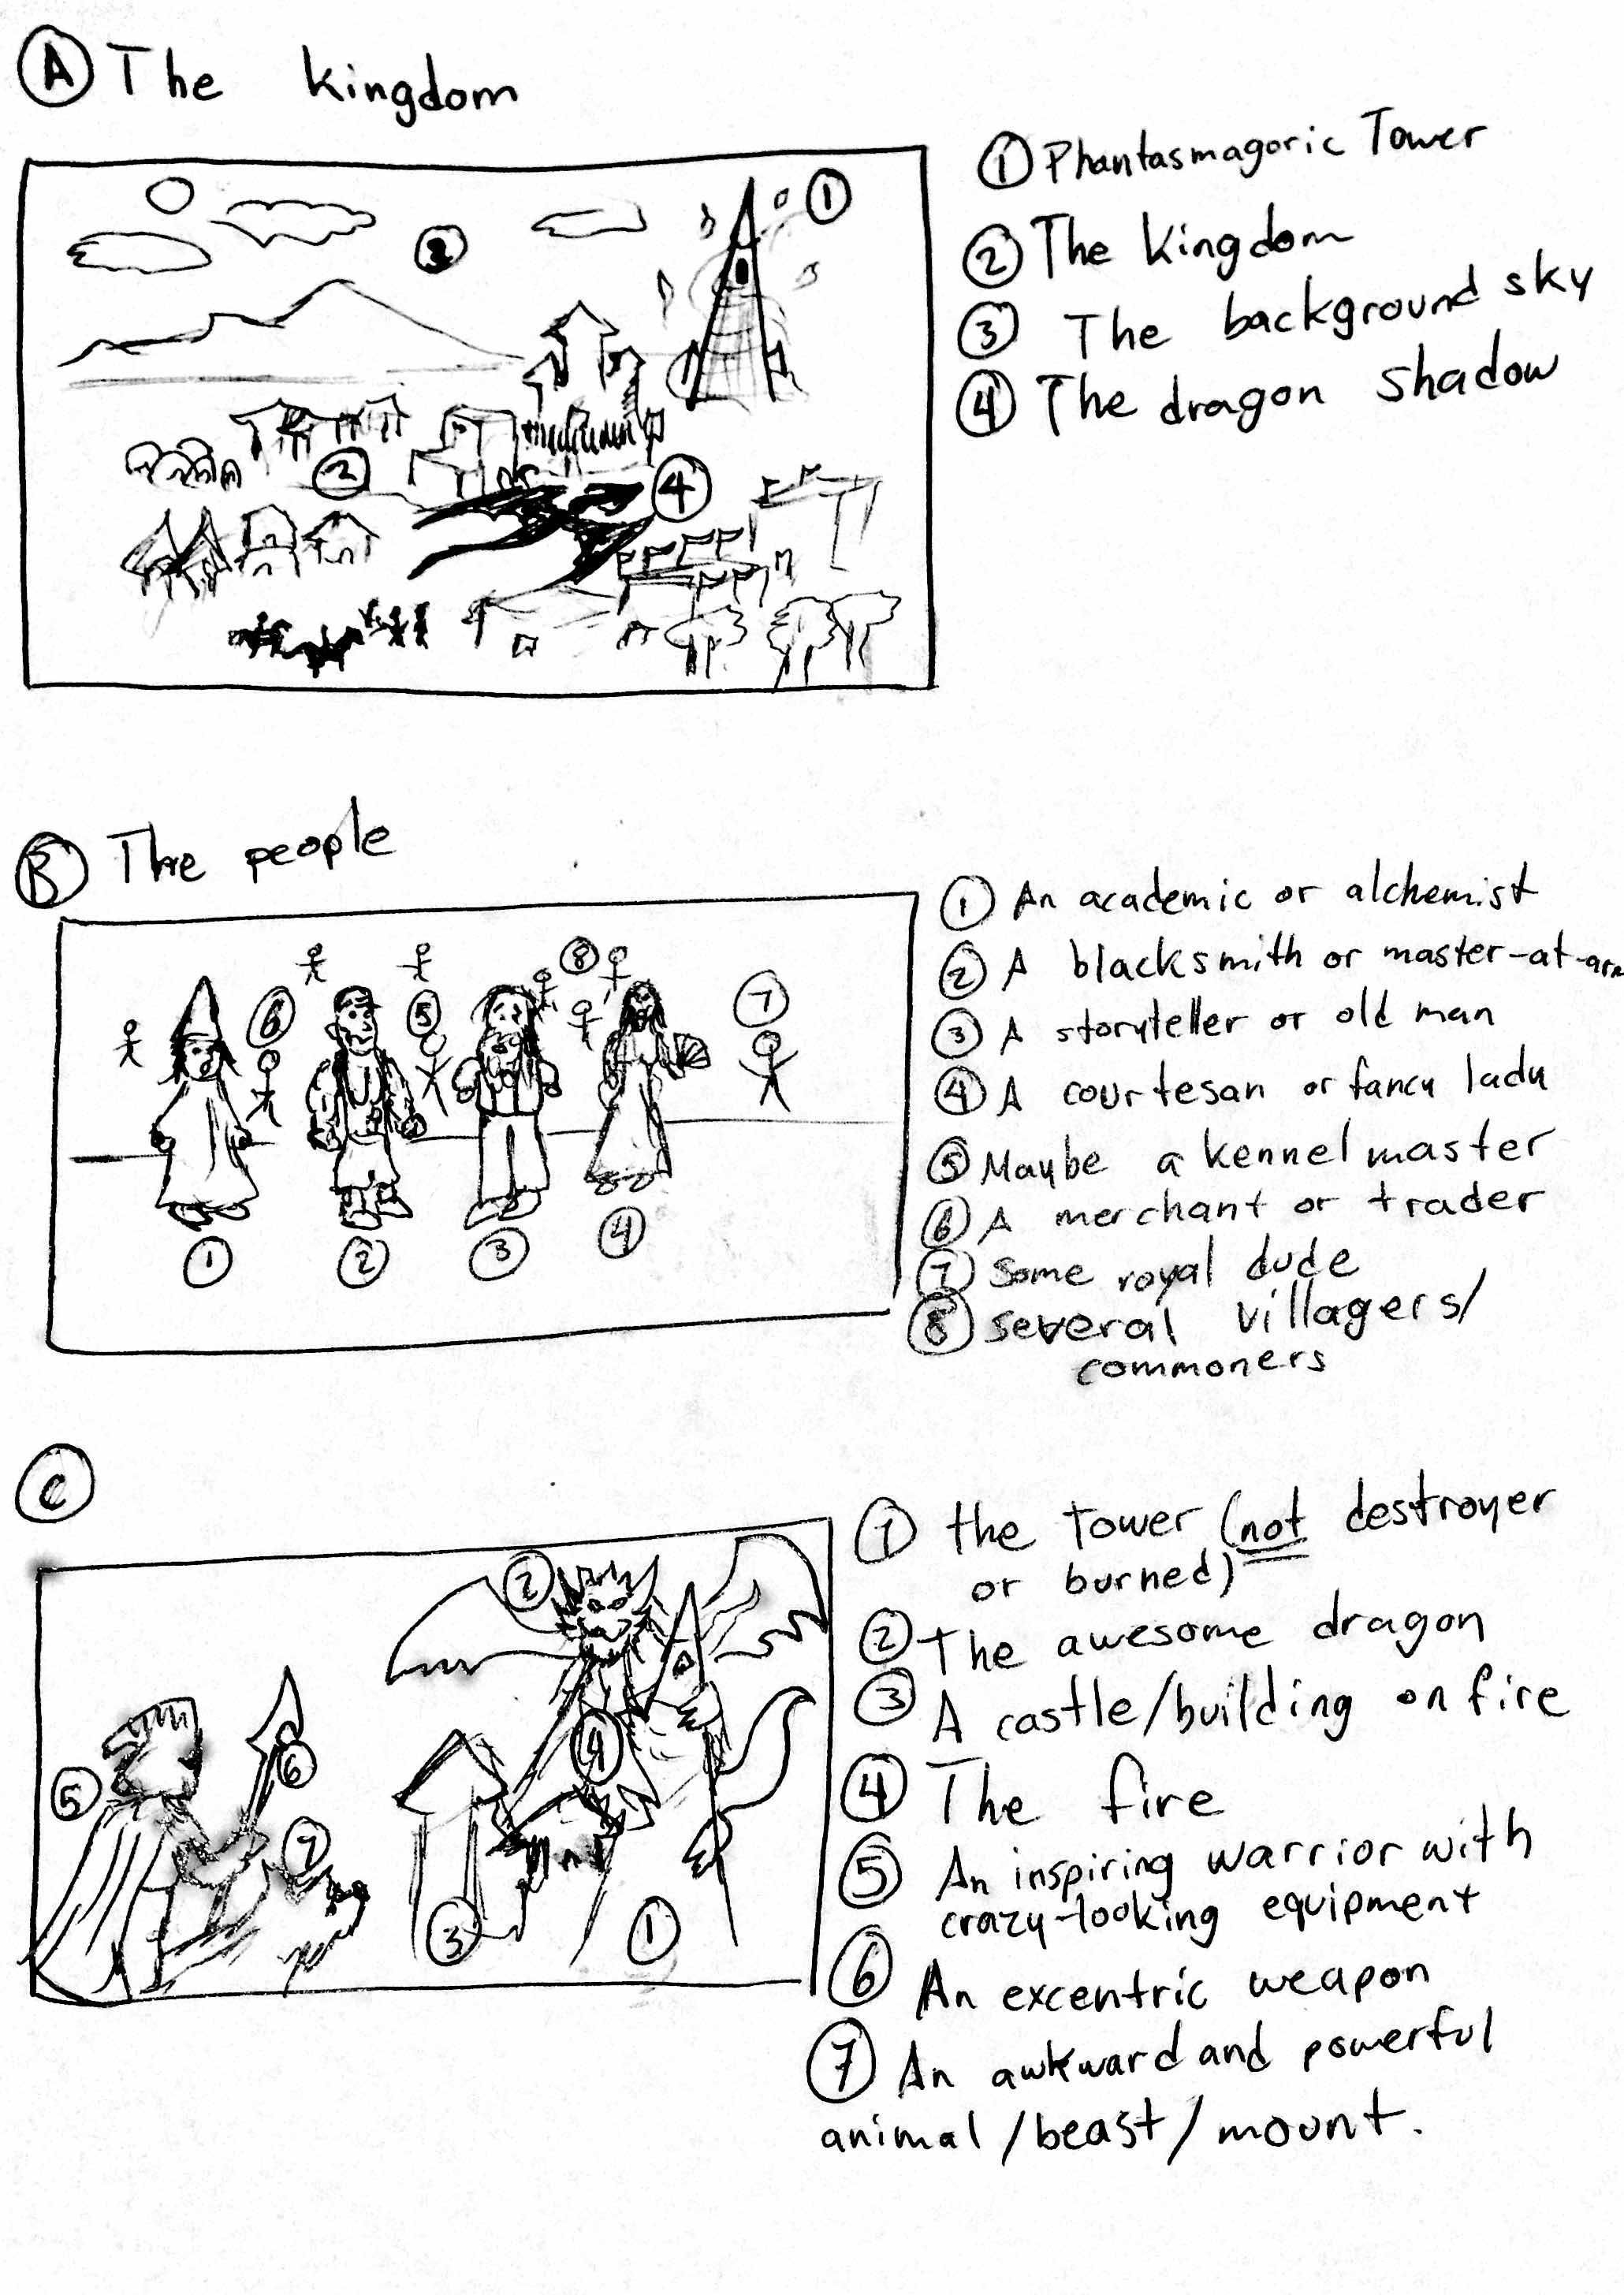 A The kingdom
1 Phantasmagoric Tower
2 The Kingdom
3 The background sky
4 The dragon shadow
1
3
2
4
B The people
1 An academic or alchemist
2 A blacksmith or master-at-arm
3 A storyteller or old man
4 A courtesan or fancy lady
5 Maybe a kennel master
6 A merchant or trader
7 Some royal dude
8 several villagers/
commoners
8
6
5
7
1
2
3
4
C
1 the tower (not destroyer
or burned)
2 The awesome dragon
3 A castle/building on fire
4 The fire
5 An inspiring warrior with
crazy-looking equipment
6 An excentric weapon
7 An awkward and powerful
animal/beast/mount.
2
4
6
5
7
3
1